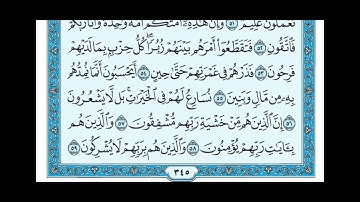 تَعْمَلُونَ عَلِيمٌ ٥١ وَإِنَّ هَٰذِهِۦٓ أُمَّتُكُمْ أُمَّةً وَٰحِدَةً وَأَنَا۠ رَبُّكُمْ
فَٱتَّقُونِ ٥٢ فَتَقَطَّعُوٓا۟ أَمْرَهُم بَيْنَهُمْ زُبُرًا كُلُّ حِزْبٍۭ بِمَا لَدَيْهِمْ
فَرِحُونَ ٥٣ فَذَرْهُمْ فِى غَمْرَتِهِمْ حَتَّىٰ حِينٍ ٥٤ أَيَحْسَبُونَ أَنَّمَا نُمِدُّهُم
بِهِۦ مِن مَّالٍ وَبَنِينَ ٥٥ نُسَارِعُ لَهُمْ فِى ٱلْخَيْرَٰتِ بَل لَّا يَشْعُرُونَ
٥٦ إِنَّ ٱلَّذِينَ هُم مِّنْ خَشْيَةِ رَبِّهِم مُّشْفِقُونَ ٥٧ وَٱلَّذِينَ هُم
بِـَٔايَٰتِ رَبِّهِمْ يُؤْمِنُونَ ٥٨ وَٱلَّذِينَ هُم بِرَبِّهِمْ لَا يُشْرِكُونَ ٥٩
٣٤٥